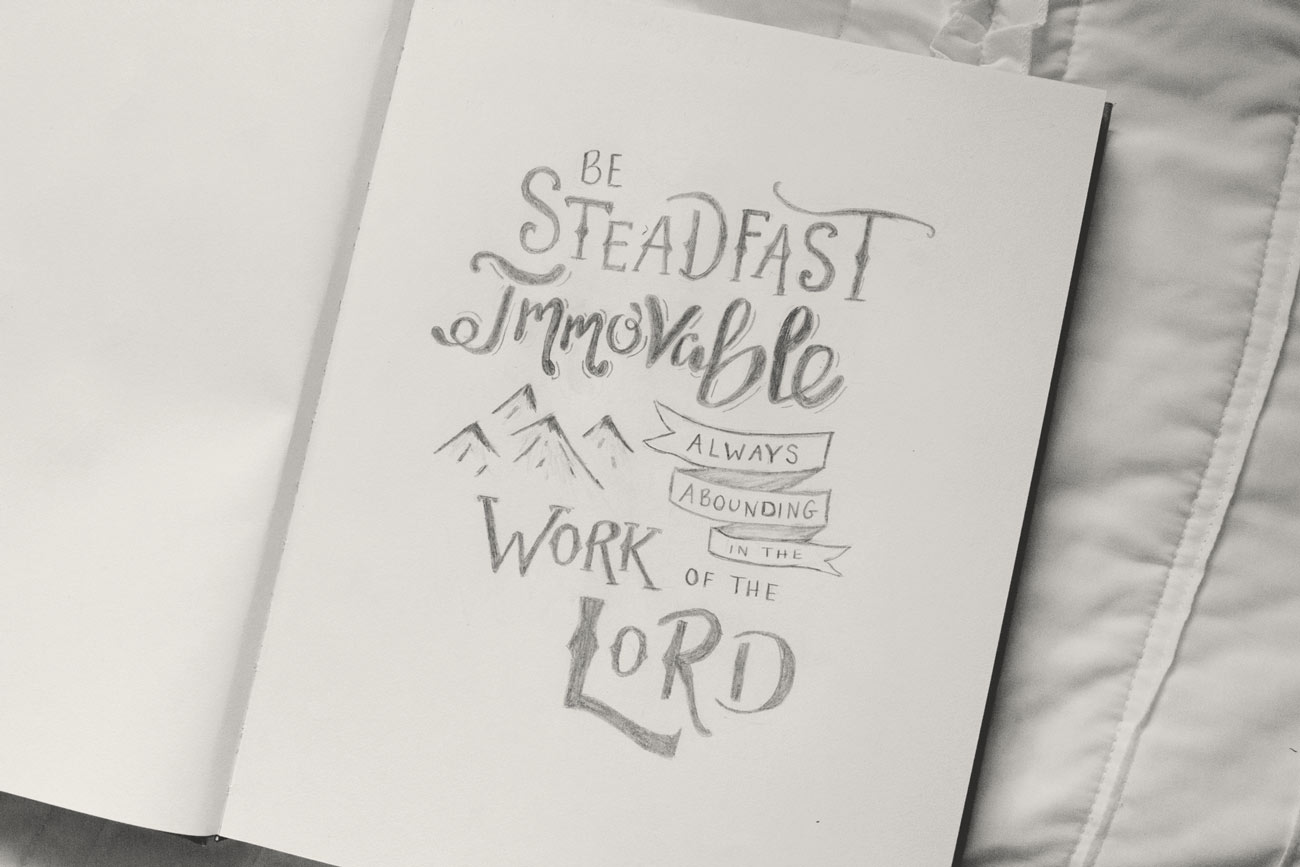 BE
STEADFAST
Immovable
ALWAYS
ABOUNDING
IN THE
WORK OF THE
LORD